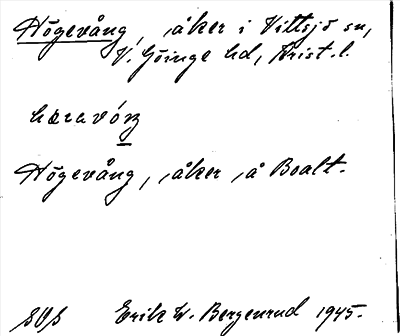 Högevång, åker i Vittsjö sn,
V. Göinge hd, Krist. l.
Högevång, åker, å Boalt.
Erik W. Bergenrud 1945.